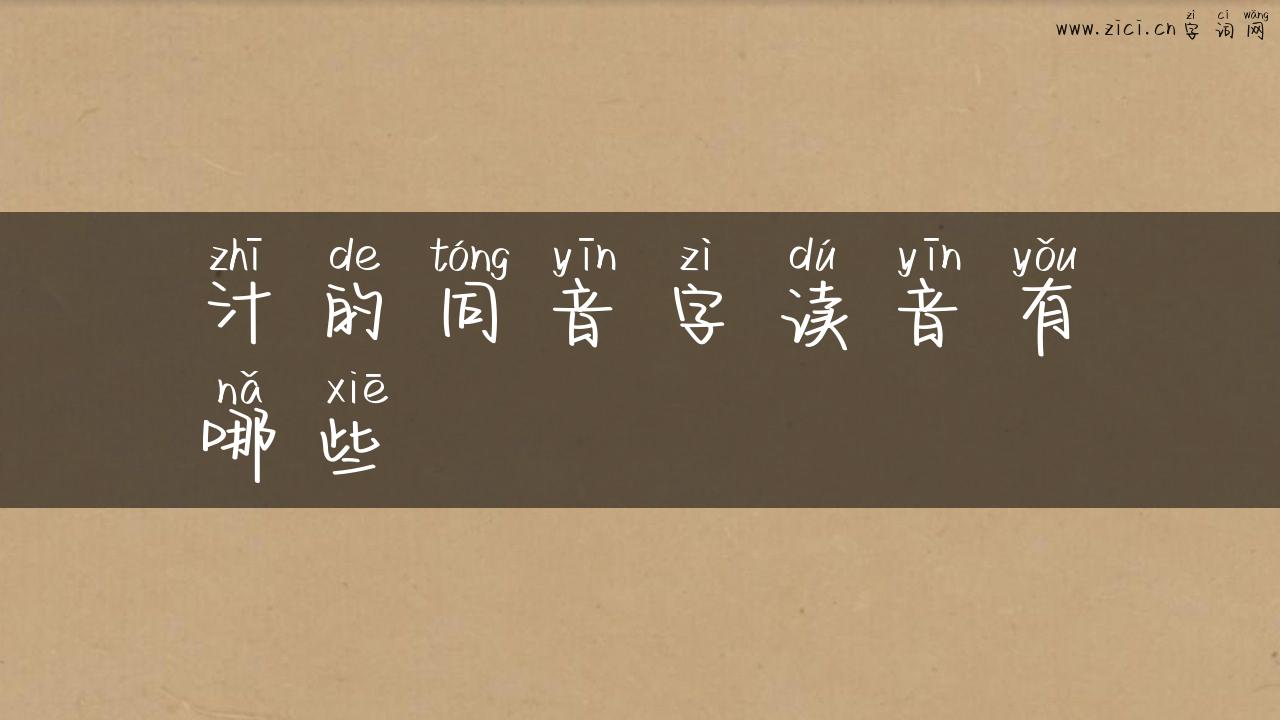 zì cí wǎng
www.zici.cn 字词网
zhī de tóng yīn zì dú yīn yǒu
汁的同音字读音有
nǎ xiē
哪些